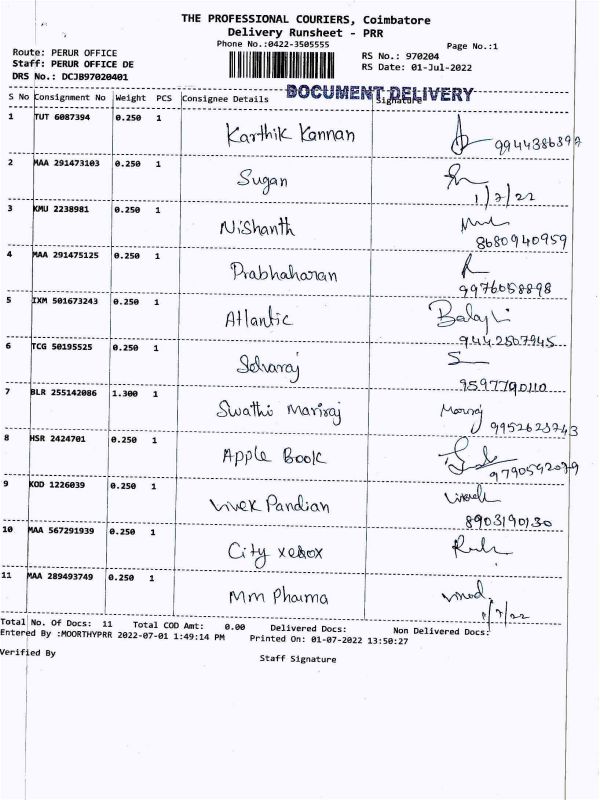 THE PROFESSIONAL COURIERS, Coimbatore
Delivery Runsheet - PRR
Phone No.:0422-3505555
Page No.:1
Route: PERUR OFFICE
RS No.: 970204
Staff: PERUR OFFICE DE
RS Date: 01-Jul-2022
DRS No.: DCJB97020401
DOCUMENT DELIVERY
S No Consignment No Weight PCS Consignee Details Signature
1 TUT 6087394 0.250 1 Karthik Kannan
2 MAA 291473103 0.250 1 Sugan
1/7/22
3 KMU 2238981 0.250 1 Nishanth
8680940959
4 MAA 291475125 0.250 1 Prabhaharan
9976058898
5 IXM 501673243 0.250 1 Atlantic Balaji
9442567945
6 TCG 50195525 0.250 1
9597790110
7 BLR 255142086 1.300 1 Swathi Mariraj
9952623743
8 HSR 2424701 0.250 1 Apple Book
9790592079
9 KOD 1226039 0.250 1 Vivek Pandian
8903190130
10 MAA 567291939 0.250 1 City xerox
11 MAA 289493749 0.250 1 Mm Pharma
1/7/22
Total No. Of Docs: 11 Total COD Amt: 0.00 Delivered Docs: Non Delivered Docs:
Entered By :MOORTHYPRR 2022-07-01 1:49:14 PM Printed On: 01-07-2022 13:50:27
Verified By
Staff Signature